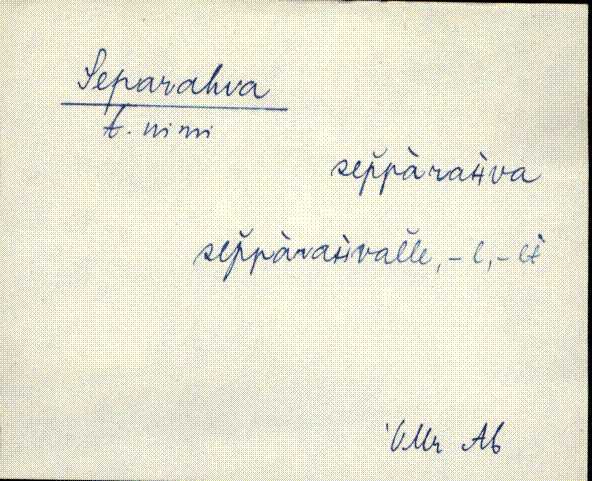 Separahva
t. nimi
sep̆pàrahva
sep̆pàrahval̆le, – l, – lt
VMr Ab